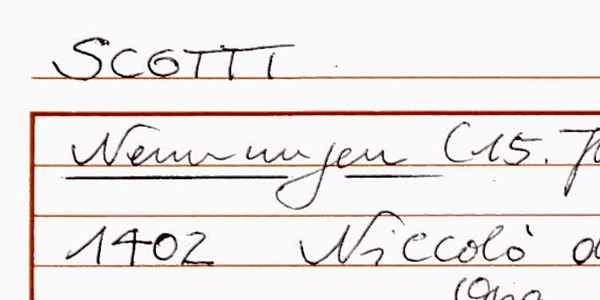 SCOTTI
Nennungen (15. J
1402 Niccolò d